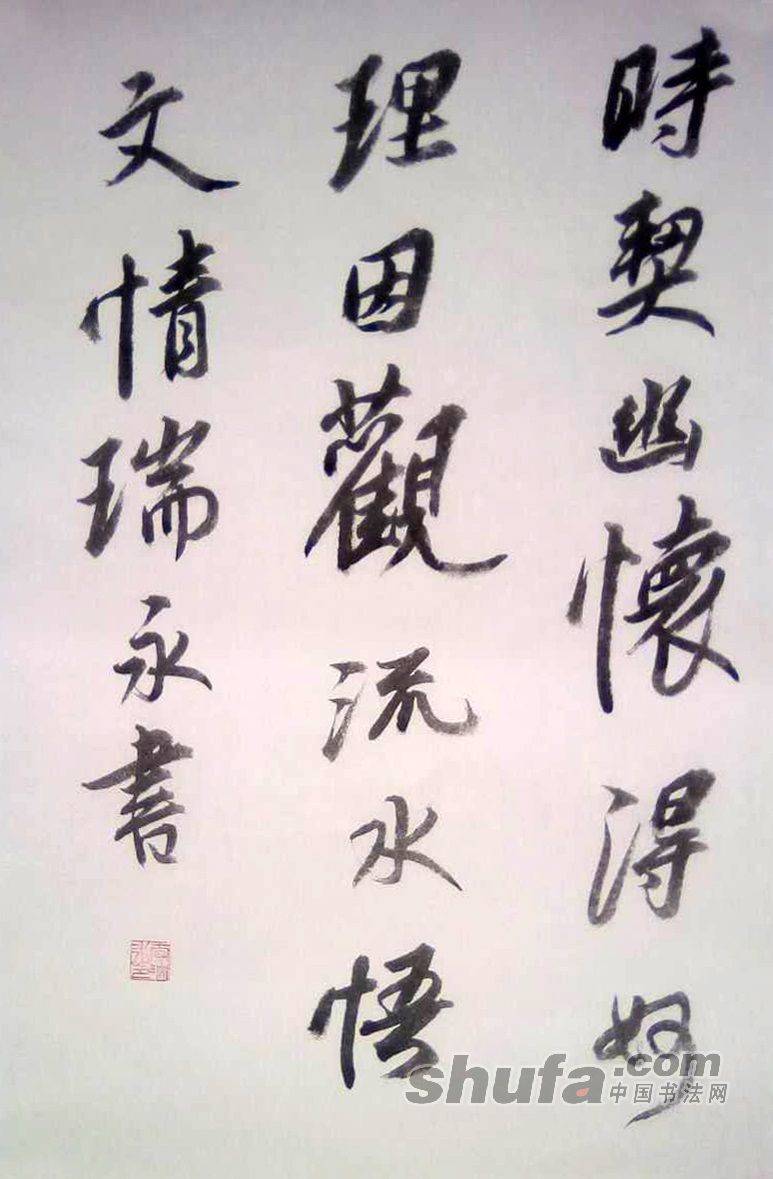 時契幽懷得妙
理因觀流水悟
文情瑞永書
shufa.com
中国书法网